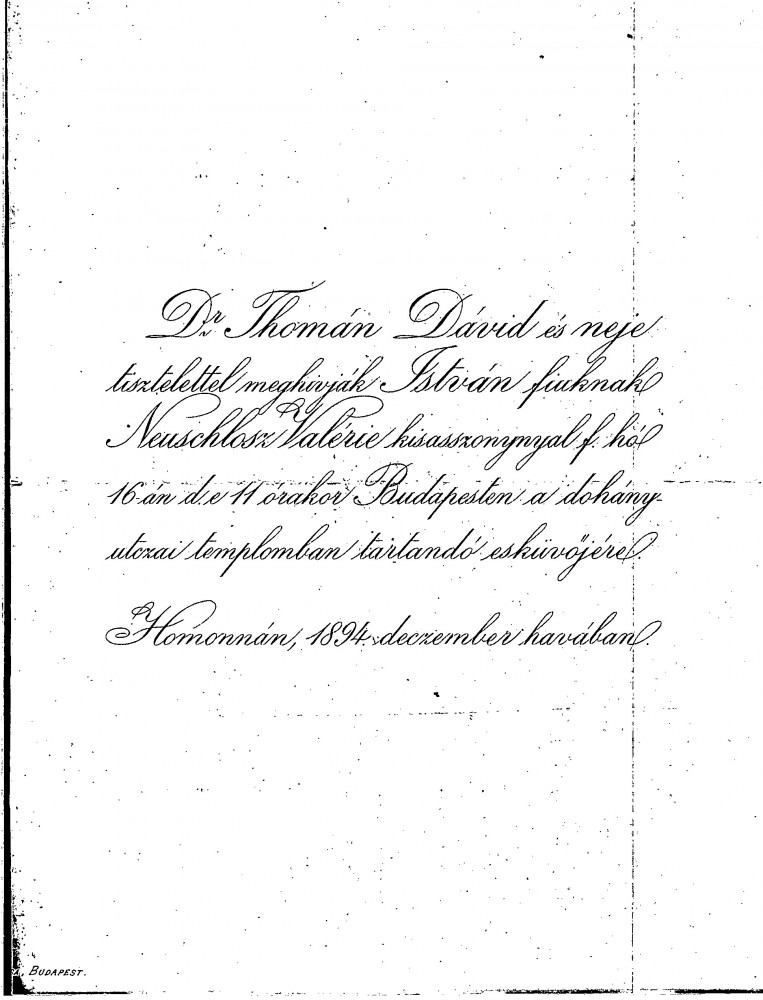 Dr Thomán Dávid és neje
tisztelettel meghivják István fiuknak
Neuschlosz Valérie kisasszonynyal f. hó
16-án d.e 11 órakor Budapesten a dohány-
utczai templomban tartandó esküvőjére.
Homonnán, 1894. deczember havában.
BUDAPEST.